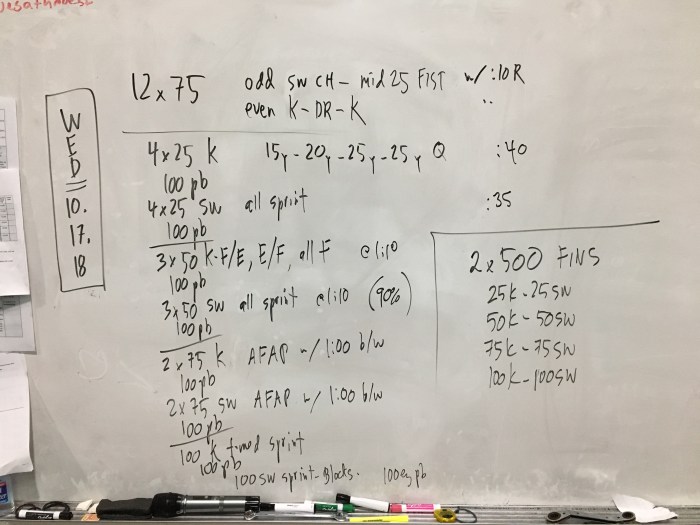 WED 10.17.18
12x75 odd SW CH - mid 25 FIST w/ :10R
even K-DR-K "
4x25 K 15y-20y-25y-25y Q :40
100 pb
4x25 SW all sprint :35
100 pb
3x50 K-F/E, E/F, all F @1:10
100 pb
3x50 SW all sprint @1:10 (90%)
100 pb
2x75 K AFAP w/ 1:00 b/w
100 pb
2x75 SW AFAP w/ 1:00 b/w
100 pb
100 K timed sprint
100 pb
100 SW sprint-Blocks. 100 ez pb
2x500 FINS
25K-25SW
50K-50SW
75K-75SW
100K-100SW